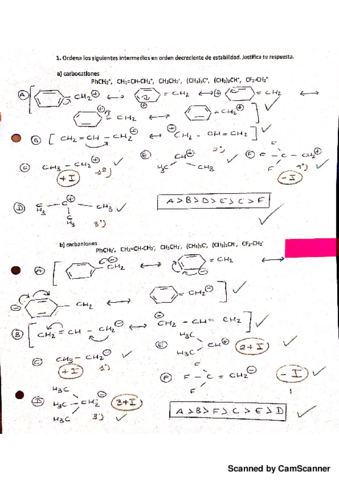 1. Ordena los siguientes intermedios en orden decreciente de estabilidad. Justifica tu respuesta.
a) carbocationes
PhCH₂⁺, CH₂=CH-CH₂⁺, CH₃CH₂⁺, (CH₃)₃C⁺, (CH₃)₂CH⁺, CF₃-CH₂⁺
A CH₂⊕ ↔ = CH₂ ↔ = CH₂
CH₂ ↔ = CH₂
B [ CH₂ = CH - CH₂⊕ ↔ ⊕CH₂ - CH = CH₂ ]
C CH₃ - CH₂⊕ +I 1º)
E CH⊕ H₃C CH₃ 2º)
F F - C - CH₂⊕ F -I 1º)
D H₃C - C⊕ - CH₃ CH₃ 3º)
A > B > D > E > C > F
b) carbaniones
PhCH₂⁻, CH₂=CH-CH₂⁻, CH₃CH₂⁻, (CH₃)₃C⁻, (CH₃)₂CH⁻, CF₃-CH₂⁻
A CH₂ ↔ = CH₂ ↔
CH₂ ↔ = CH₂
B [ CH₂ = CH - CH₂⊖ ↔ ⊖CH₂ - CH = CH₂ ]
C CH₃ - CH₂⊖ +I 1º)
E H₃C CH⊖ H₃C 2+I
F F F - C - CH₂⊖ F -I
D H₃C H₃C - CH₂⊖ H₃C 3+I 3º)
A > B > F > C > E > D
Scanned by CamScanner